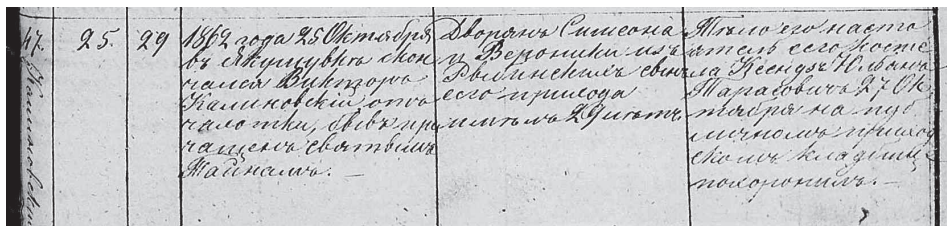 47.
Калиновскій
25.
29
1862 года 25 Октября
въ Якушувкѣ скон
чался Викторъ
Калиновскій отъ
чахотки, бывъ прі
чащенъ святымъ
Тайнамъ. —
Дворянъ Симеона
и Вероники изъ
Рылинскихъ сынъ
сего прихода
имѣлъ 29 лѣтъ
Тѣло его насто
ятель сего костіе
ла Ксендзъ Юльянъ
Тарасовичъ 27 Ок
тября на пуб
личномъ приход
скомъ кладбищѣ
похоронилъ. —